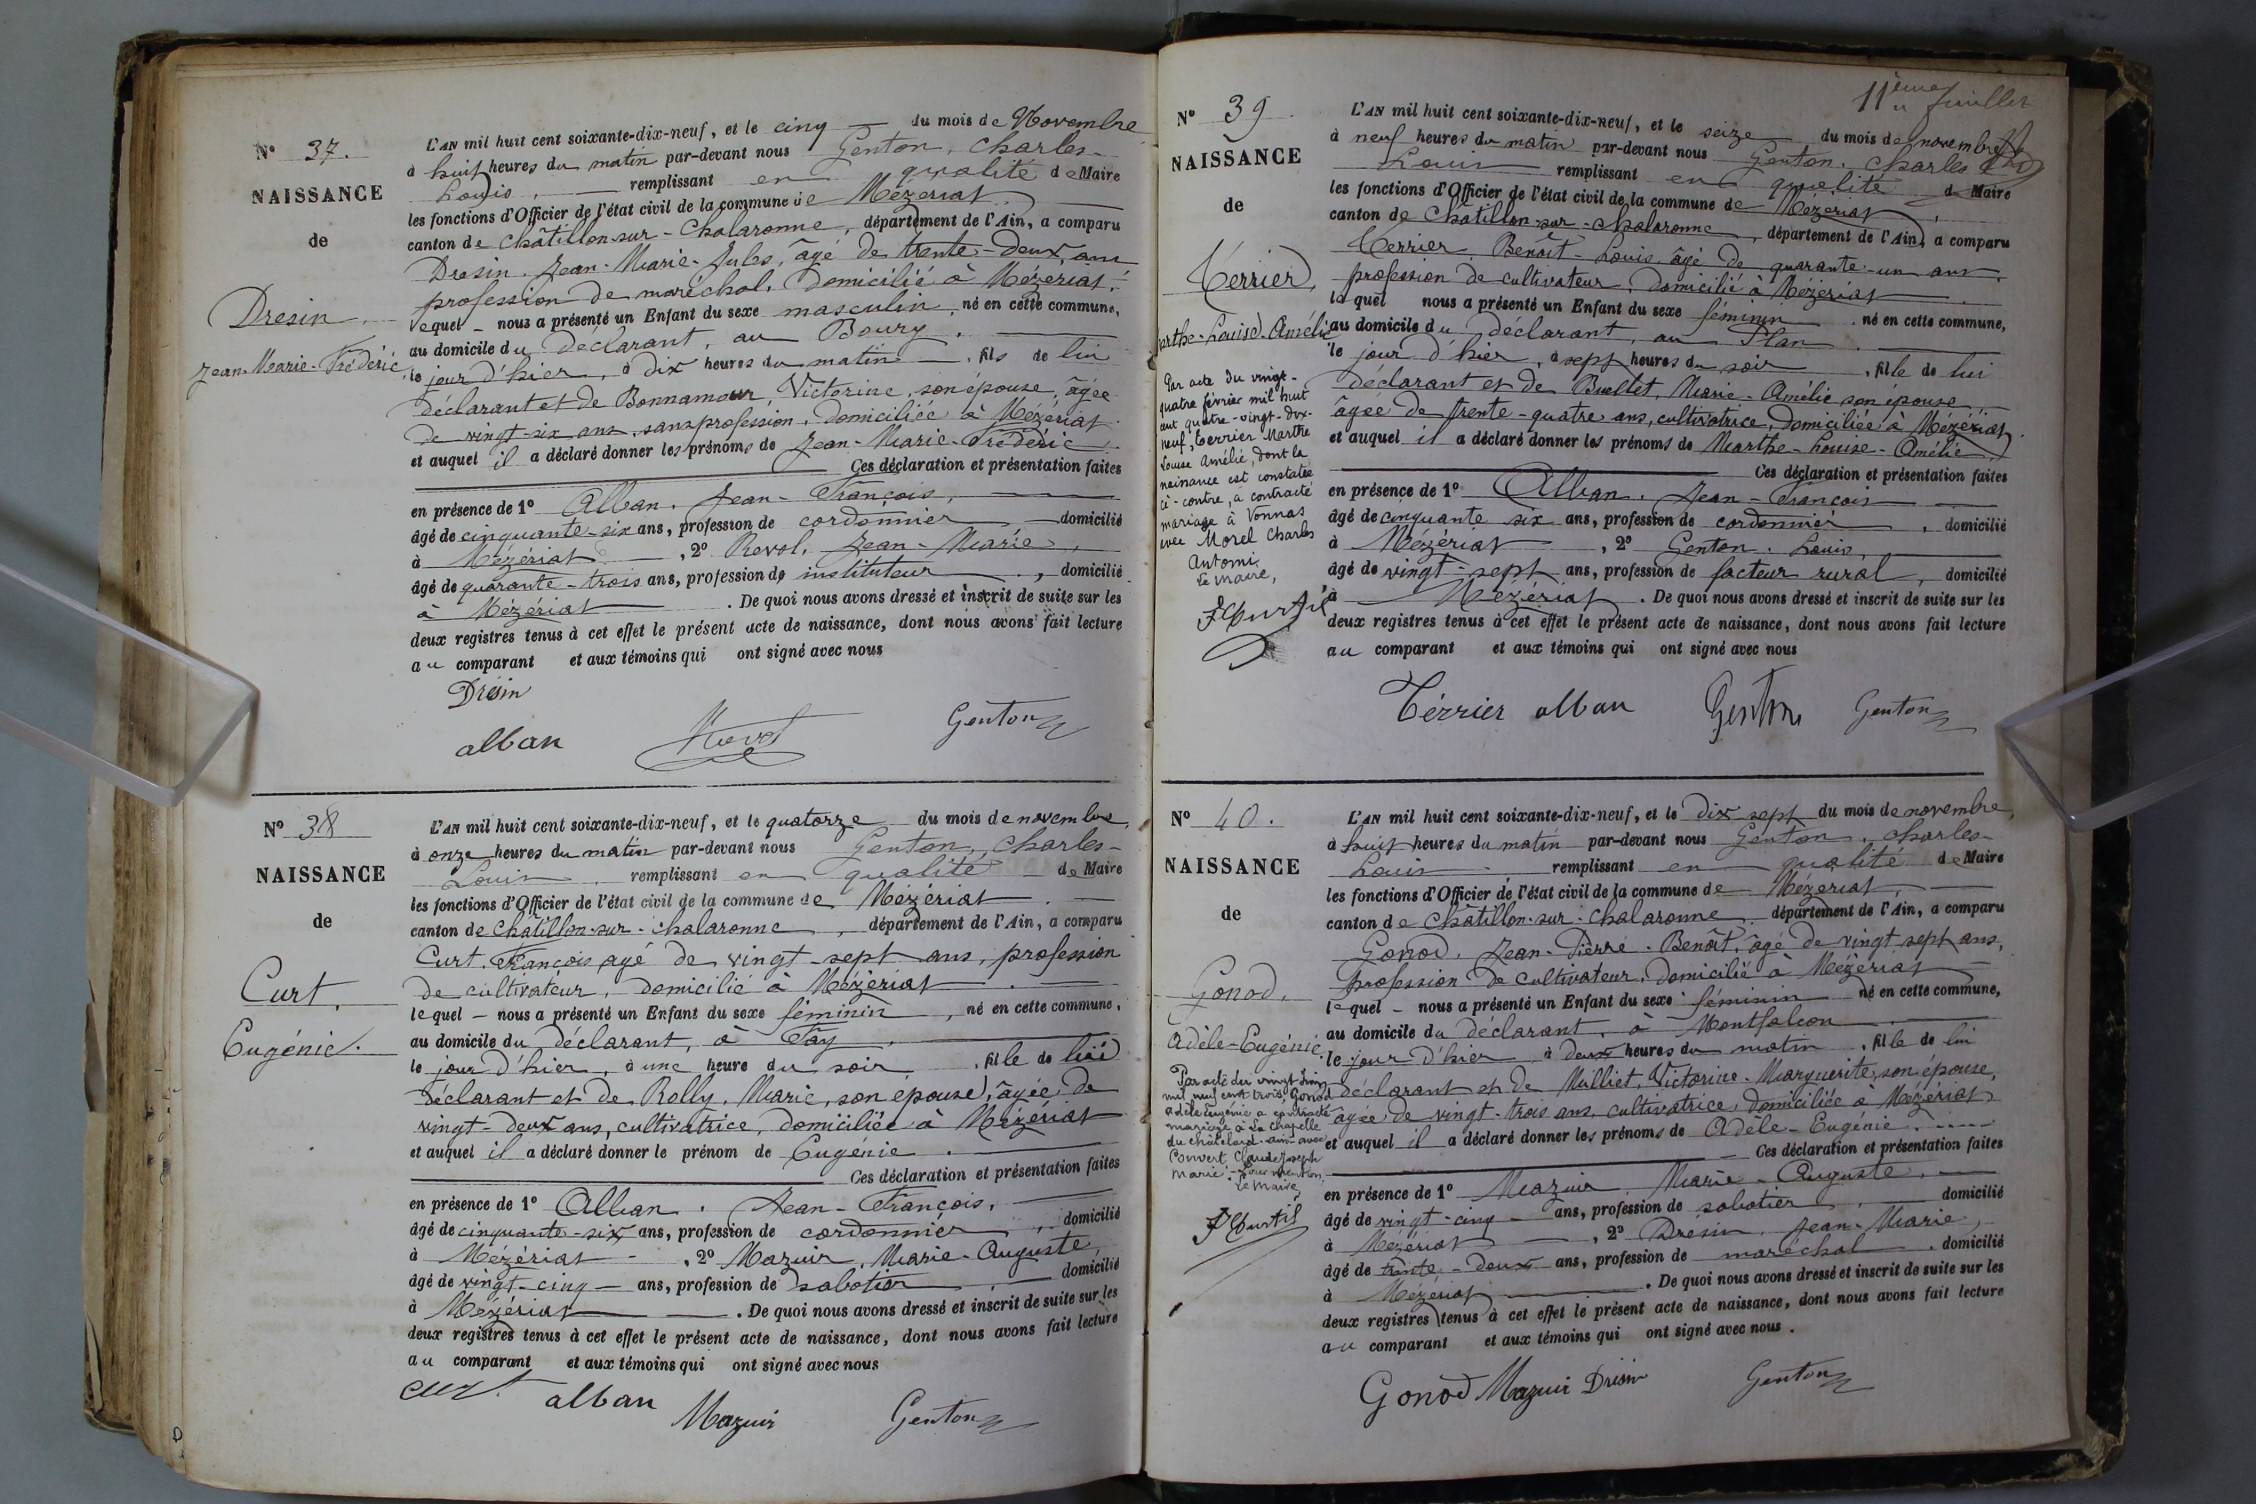 N° 37.
NAISSANCE
de
Dresin
Jean-Marie-Frédéric
L'AN mil huit cent soixante-dix-neuf, et le cinq du mois de Novembre
à huit heures du matin par-devant nous Genton, Charles-
Louis, remplissant en qualité de Maire
les fonctions d'Officier de l'état civil de la commune de Mézériat
canton de Châtillon-sur-Chalaronne, département de l'Ain, a comparu
Dresin. Jean-Marie-Jules, âgé de trente-deux, ans
profession de maréchal, domicilié à Mézériat,
lequel – nous a présenté un Enfant du sexe masculin, né en cette commune,
au domicile du déclarant, au Boury.
le jour d'hier, à dix heures du matin, fils de lui
déclarant et de Bonnamour, Victorine, son épouse, âgée
de vingt-six ans, sans profession, domiciliée à Mézériat.
et auquel il a déclaré donner les prénoms de Jean-Marie-Frédéric.
Ces déclaration et présentation faites
en présence de 1° Alban. Jean-François,
âgé de cinquante-six ans, profession de cordonnier domicilié
à Mézériat, 2° Revol. Jean-Marie,
âgé de quarante-trois ans, profession de instituteur, domicilié
à Mézériat. De quoi nous avons dressé et inscrit de suite sur les
deux registres tenus à cet effet le présent acte de naissance, dont nous avons fait lecture
au comparant et aux témoins qui ont signé avec nous
Drésin
alban Revol Genton
N° 38
NAISSANCE
de
Curt,
Eugénie.
L'AN mil huit cent soixante-dix-neuf, et le quatorze du mois de novembre,
à onze heures du matin par-devant nous Genton, Charles-
Louis remplissant en qualité de Maire
les fonctions d'Officier de l'état civil de la commune de Mézériat.
canton de Châtillon-sur-Chalaronne, département de l'Ain, a comparu
Curt. François agé de vingt-sept ans, profession
de cultivateur, domicilié à Mézériat.
lequel – nous a présenté un Enfant du sexe féminin, né en cette commune,
au domicile du déclarant, à Fay.
le jour d'hier, à une heure du soir, fille de lui
déclarant et de Rolly, Marie, son épouse, âgée de
vingt-deux ans, cultivatrice, domiciliée à Mézériat
et auquel il a déclaré donner le prénom de Eugénie.
Ces déclaration et présentation faites
en présence de 1° Alban. Jean-François,
âgé de cinquante-six ans, profession de cordonnier, domicilié
à Mézériat, 2° Mazuir, Marie-Auguste,
âgé de vingt-cinq ans, profession de sabotier, domicilié
à Mézériat. De quoi nous avons dressé et inscrit de suite sur les
deux registres tenus à cet effet le présent acte de naissance, dont nous avons fait lecture
au comparant et aux témoins qui ont signé avec nous
curt. alban Mazuir Genton
11ème feuillet
N° 39
NAISSANCE
de
Terrier,
Marthe-Louise-Amélie
Par acte du vingt-
quatre février mil huit
cent quatre-vingt-dix-
neuf, Terrier Marthe
Louise Amélie, dont la
naissance est constatée
ci-contre, a contracté
mariage à Vonnas
avec Morel Charles
Antoni.
Le Maire,
L'AN mil huit cent soixante-dix-neuf, et le seize du mois de novembre
à neuf heures du matin par-devant nous Genton. Charles
Louis remplissant en qualité de Maire
les fonctions d'Officier de l'état civil de la commune de Mézériat,
canton de Châtillon-sur-Chalaronne, département de l'Ain, a comparu
Terrier. Benoît-Louis, âgé de quarante-un ans,
profession de cultivateur, domicilié à Mézériat.
lequel nous a présenté un Enfant du sexe féminin. né en cette commune,
au domicile du déclarant, au Plan.
le jour d'hier, à sept heures du soir, fille de lui
déclarant et de Buellet, Marie-Amélie son épouse
âgée de trente-quatre ans, cultivatrice, domiciliée à Mézériat.
et auquel il a déclaré donner les prénoms de Marthe-Louise-Amélie.
Ces déclaration et présentation faites
en présence de 1° Alban. Jean-François
âgé de cinquante six ans, profession de cordonnier, domicilié
à Mézériat, 2° Genton. Louis,
âgé de vingt-sept ans, profession de facteur rural, domicilié
à Mézériat. De quoi nous avons dressé et inscrit de suite sur les
deux registres tenus à cet effet le présent acte de naissance, dont nous avons fait lecture
au comparant et aux témoins qui ont signé avec nous
Térrier alban Genton Genton
N° 40.
NAISSANCE
de
Gonod,
Adèle-Eugénie.
Par acte du vingt Juin
mil neuf cent trois Gonod
adèle Eugénie a contracté
mariage à La Chapelle
du chatelard-ain-avec
Convert Claude Joseph
Marie.-Pour mention,
Le Maire,
L'AN mil huit cent soixante-dix-neuf, et le dix sept du mois de novembre,
à huit heures du matin par-devant nous Genton. Charles-
Louis remplissant en qualité de Maire
les fonctions d'Officier de l'état civil de la commune de Mézériat,
canton de Châtillon-sur-Chalaronne département de l'Ain, a comparu
Gonod. Jean-Pierre-Benoît, âgé de vingt sept ans,
profession de cultivateur, domicilié à Mézériat
lequel – nous a présenté un Enfant du sexe féminin né en cette commune,
au domicile du déclarant, à Montfalcon
le jour d'hier à deux heures du matin, fille de lui
déclarant et de Milliet, Victorine-Marguerite, son épouse,
âgée de vingt-trois ans, cultivatrice, domiciliée à Mézériat
et auquel il a déclaré donner les prénoms de Adèle-Eugénie.
Ces déclaration et présentation faites
en présence de 1° Mazuir Marie-Auguste,
âgé de vingt-cinq ans, profession de sabotier, domicilié
à Mézériat, 2° Dresin Jean-Marie,
âgé de trente-deux ans, profession de maréchal, domicilié
à Mézériat. De quoi nous avons dressé et inscrit de suite sur les
deux registres tenus à cet effet le présent acte de naissance, dont nous avons fait lecture
au comparant et aux témoins qui ont signé avec nous.
Gonod Mazuir Drésin Genton